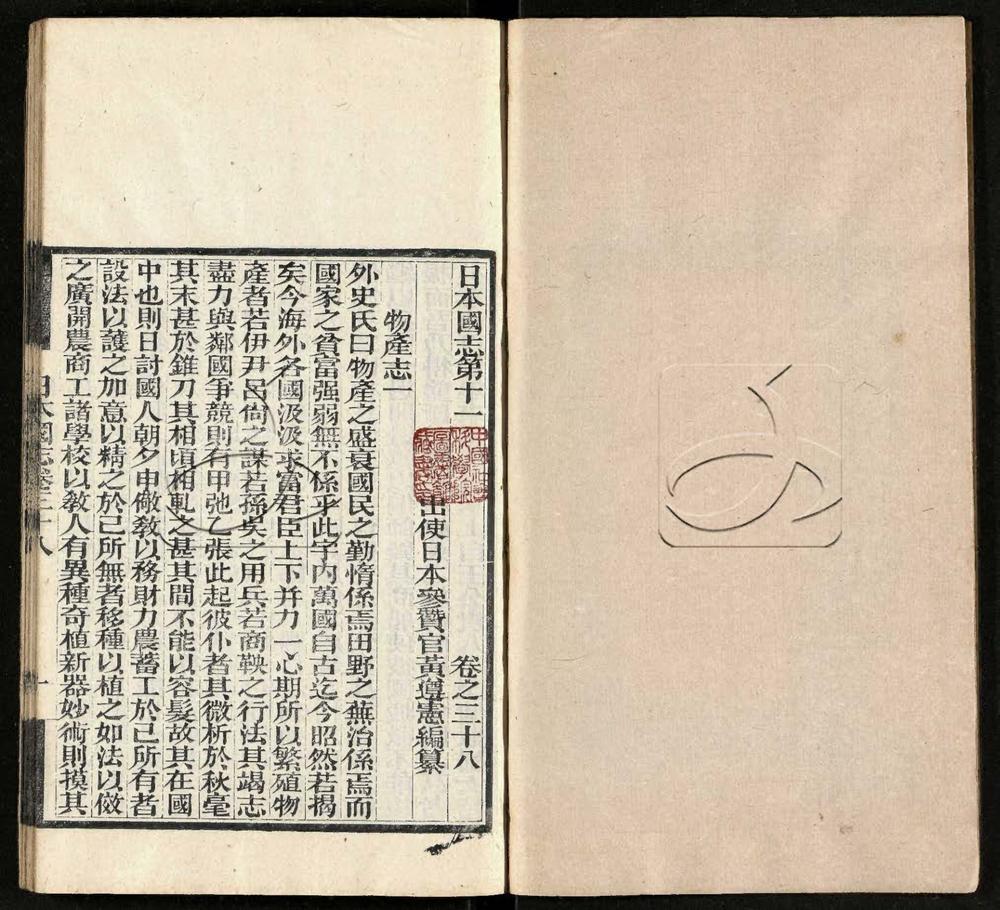 日本國志第十一 卷之三十八
出使日本參贊官黃遵憲編纂
物產志一
外史氏曰物產之盛衰國民之勤惰係焉田野之蕪治係焉而
國家之貧富强弱無不係乎此宇內萬國自古迄今昭然若揭
矣今海外各國汲汲求富君臣上下并力一心期所以繁殖物
產者若伊尹呂尚之謀若孫吳之用兵若商鞅之行法其竭志
盡力與鄰國爭競則有甲弛乙張此起彼仆者其微析於秋毫
其末甚於錐刀其相頃相軋之甚其間不能以容髮故其在國
中也則日討國人朝夕申儆敎以務財力農蓄工於己所有者
設法以護之加意以精之於己所無者移種以植之如法以傚
之廣開農商工諸學校以敎人有異種奇植新器妙術則摸其
日本國志卷三十八 一